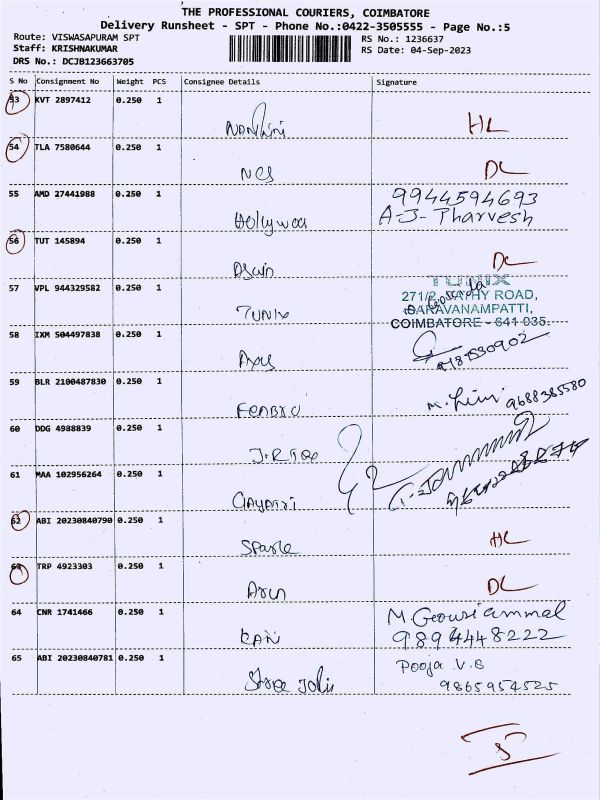 THE PROFESSIONAL COURIERS, COIMBATORE
Delivery Runsheet - SPT - Phone No.:0422-3505555 - Page No.:5
Route: VISWASAPURAM SPT
RS No.: 1236637
Staff: KRISHNAKUMAR
RS Date: 04-Sep-2023
DRS No.: DCJB123663705
S No Consignment No Weight PCS Consignee Details Signature
53 KVT 2897412 0.250 1
Nandhini HL
54 TLA 7580644 0.250 1
NCS DL
55 AMD 27441988 0.250 1 9944594693
Hollywoo A-J- Tharvesh
56 TUT 145894 0.250 1
DL
TUNIX
57 VPL 944329582 0.250 1 271/2, SATHY ROAD,
TUNIX SARAVANAMPATTI,
COIMBATORE - 641 035.
58 IXM 504497838 0.250 1
Axis
59 BLR 2100487830 0.250 1
9688385580
60 DDG 4988839 0.250 1
61 MAA 102956264 0.250 1
Gayatri
62 ABI 20230840790 0.250 1
HL
63 TRP 4923303 0.250 1
Arun DL
64 CNR 1741466 0.250 1 M Gowriammal
9894448222
65 ABI 20230840781 0.250 1 Pooja V.B
9865954525